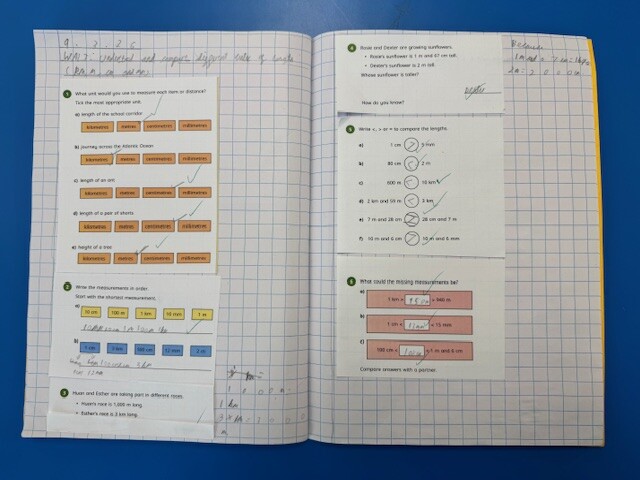 9. 3. 26
WALT: understand and compare different units of length
1 What unit would you use to measure each item or distance?
Tick the most appropriate unit.
a) length of the school corridor
kilometres metres centimetres millimetres
b) journey across the Atlantic Ocean
kilometres metres centimetres millimetres
c) length of an ant
kilometres metres centimetres millimetres
d) length of a pair of shorts
kilometres metres centimetres millimetres
e) height of a tree
kilometres metres centimetres millimetres
2 Write the measurements in order.
Start with the shortest measurement.
a)
10 cm 100 m 1 km 10 mm 1 m
b)
1 cm 3 km 100 cm 12 mm 2 m
3 Huan and Esther are taking part in different races.
• Huan's race is 1,000 m long.
• Esther's race is 3 km long.
1 0 0 0 m
1 km
4 Rosie and Dexter are growing sunflowers.
• Rosie's sunflower is 1 m and 67 cm tall.
• Dexter's sunflower is 2 m tall.
Whose sunflower is taller?
Dexter
How do you know?
Because
5 Write <, > or = to compare the lengths.
a) 1 cm > 5 mm
b) 80 cm < 2 m
c) 600 m < 10 km
d) 2 km and 59 m < 3 km
e) 7 m and 28 cm 28 cm and 7 m
f) 10 m and 6 cm > 10 m and 6 mm
6 What could the missing measurements be?
a)
1 km > = 940 m
b)
1 cm < < 15 mm
c)
100 cm < < 1 m and 6 cm
Compare answers with a partner.